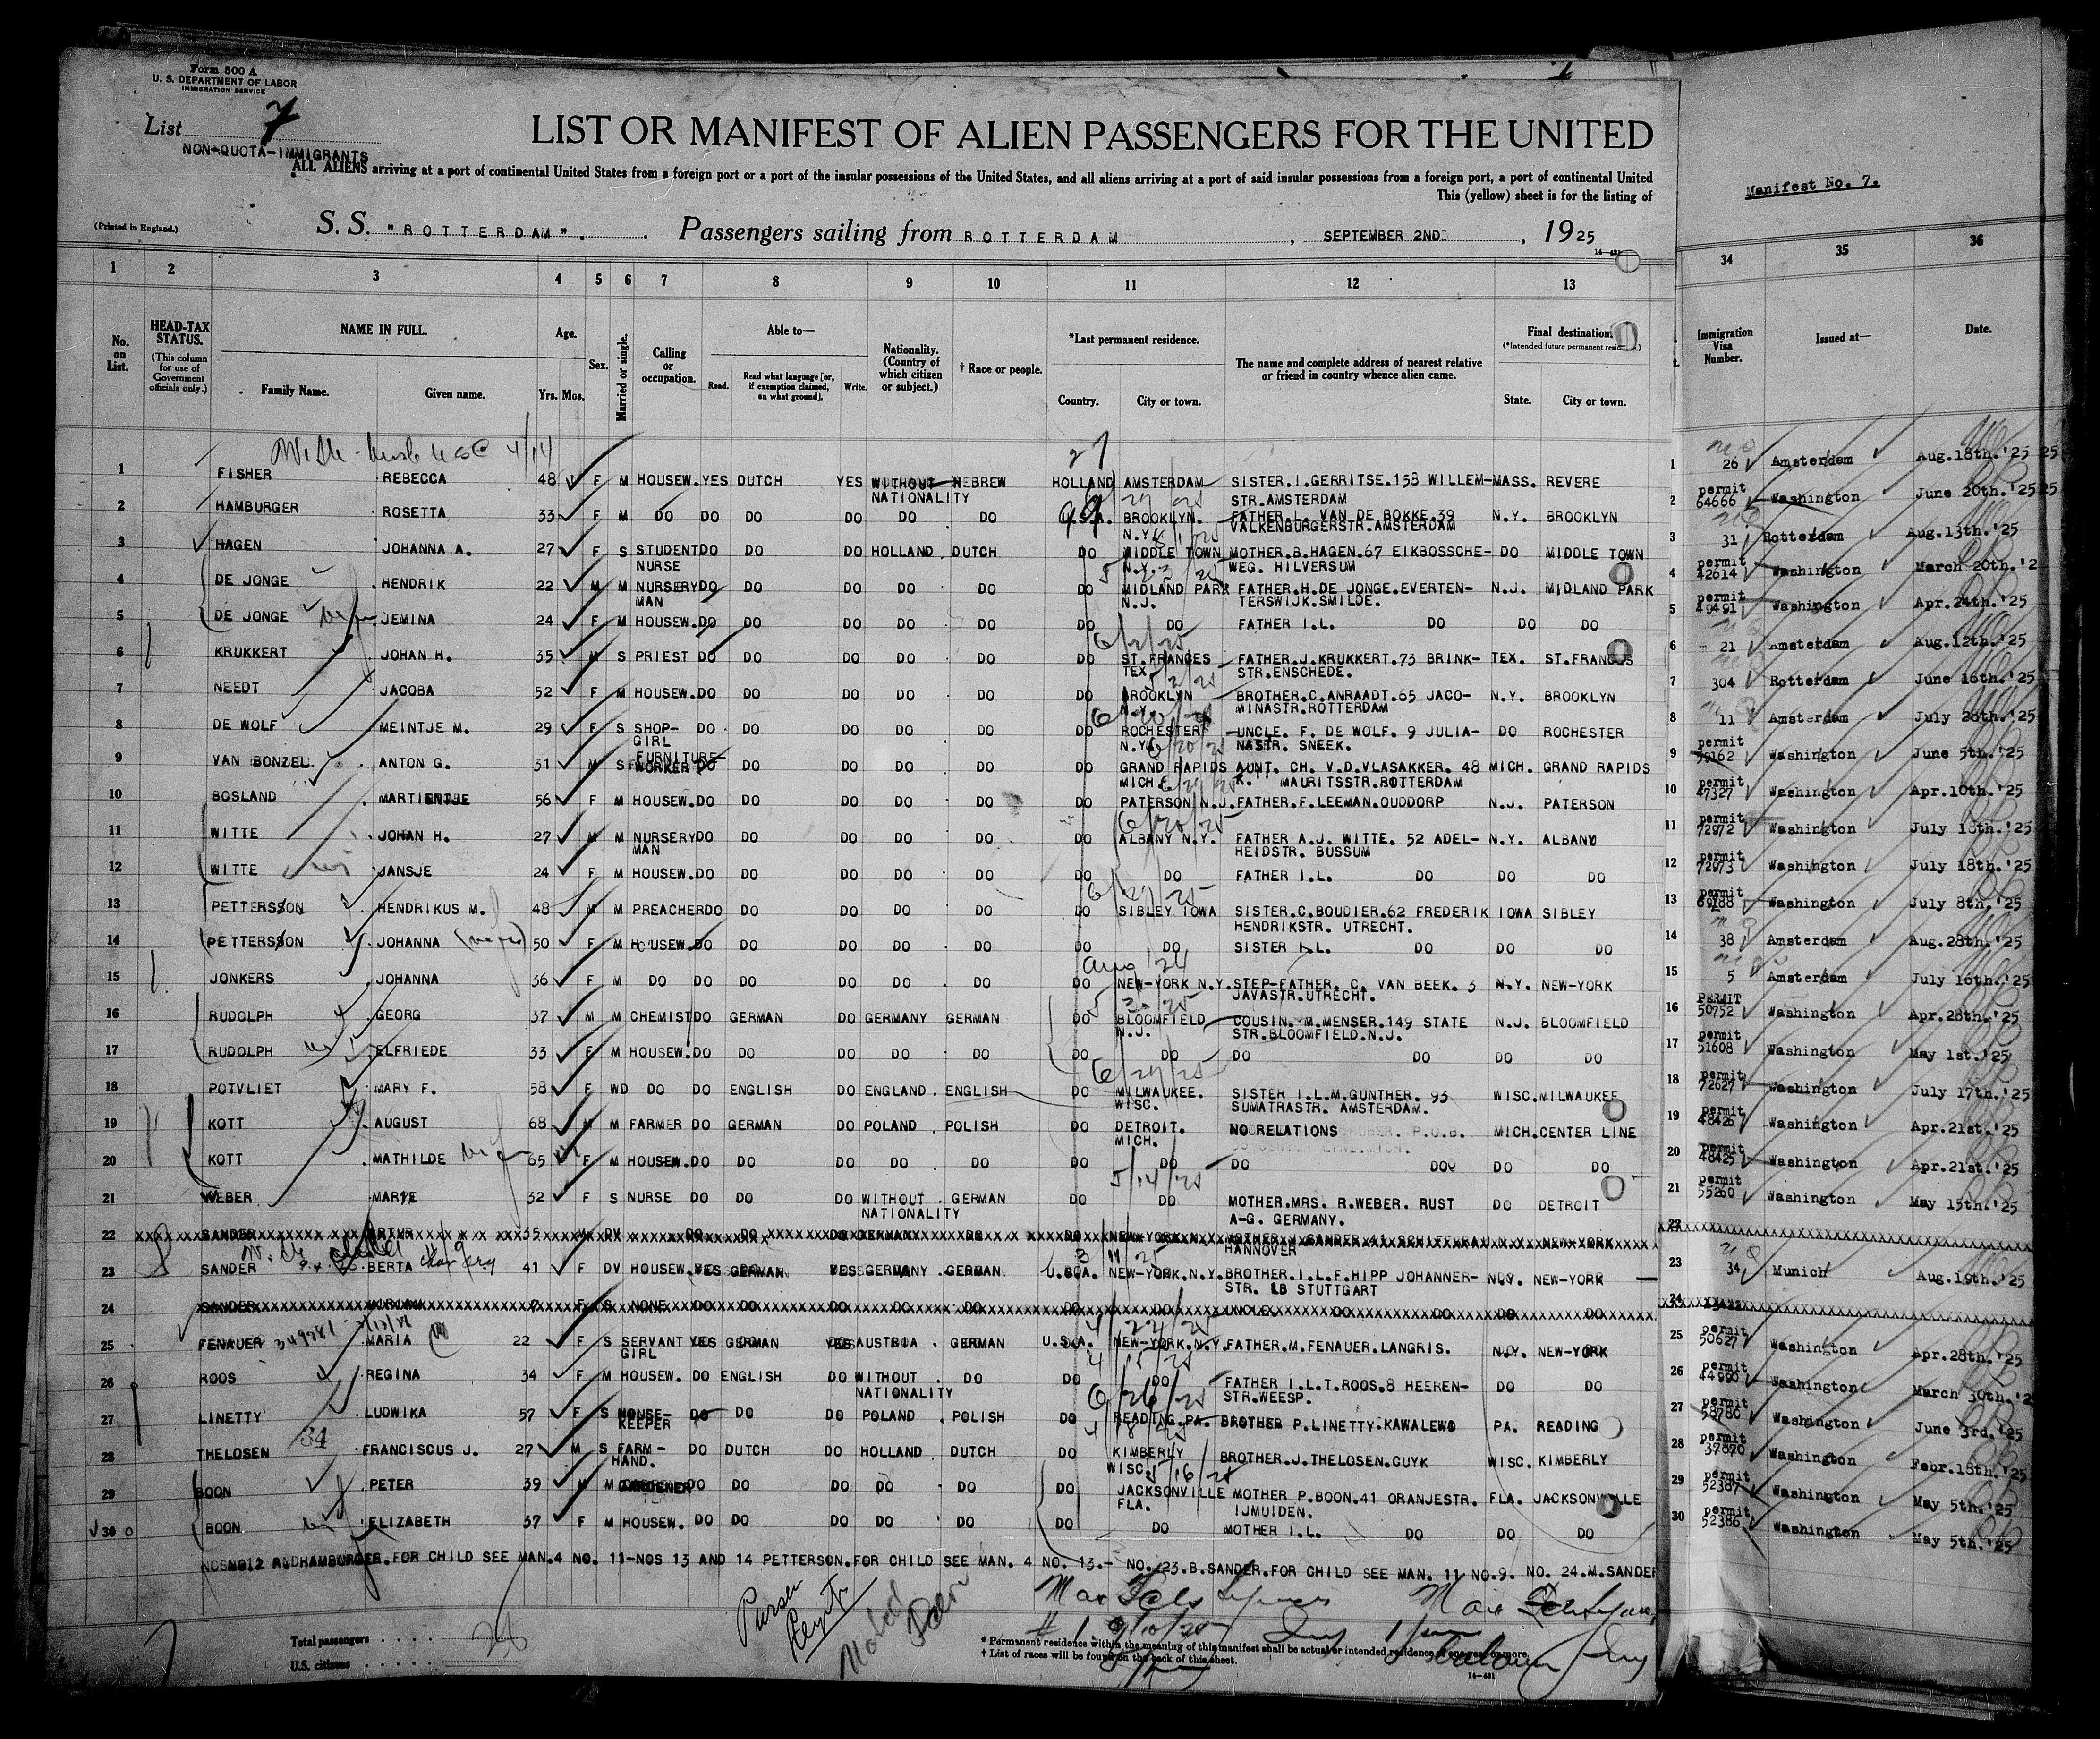 Form 500 A
U. S. DEPARTMENT OF LABOR
IMMIGRATION SERVICE
List 7
NON-QUOTA-IMMIGRANTS
LIST OR MANIFEST OF ALIEN PASSENGERS FOR THE UNITED
ALL ALIENS arriving at a port of continental United States from a foreign port or a port of the insular possessions of the United States, and all aliens arriving at a port of said insular possessions from a foreign port, a port of continental United
This (yellow) sheet is for the listing of
Manifest No. 7.
(Printed in England.)
S. S. "ROTTERDAM". Passengers sailing from ROTTERDAM, SEPTEMBER 2ND, 1925
14-431
1 2 3 4 5 6 7 8 9 10 11 12 13 34 35 36
No. on List.
HEAD-TAX STATUS. (This column for use of Government officials only.)
NAME IN FULL. Family Name. Given name.
Age. Yrs. Mos.
Sex.
Married or single.
Calling or occupation.
Able to— Read. Read what language [or, if exemption claimed, on what ground]. Write.
Nationality. (Country of which citizen or subject.)
† Race or people.
*Last permanent residence. Country. City or town.
The name and complete address of nearest relative or friend in country whence alien came.
Final destination. State. City or town.
Immigration Visa Number.
Issued at—
Date.
1 FISHER REBECCA 48 F M HOUSEW. YES DUTCH YES WITHOUT NATIONALITY HEBREW HOLLAND AMSTERDAM SISTER.I.GERRITSE.153 WILLEM-STR.AMSTERDAM MASS. REVERE 26 Amsterdam Aug.18th.'25
2 HAMBURGER ROSETTA 33 F M DO DO DO DO DO DO U.S.A. BROOKLYN. N.Y. FATHER.L. VAN DE BOKKE.39 VALKENBURGERSTR.AMSTERDAM N.Y. BROOKLYN permit 64666 Washington June 20th.'25
3 HAGEN JOHANNA A. 27 F S STUDENT NURSE DO DO DO HOLLAND DUTCH DO MIDDLE TOWN N.Y. MOTHER.B.HAGEN.67 EIKBOSSCHE-WEG. HILVERSUM DO MIDDLE TOWN 31 Rotterdam Aug.13th.'25
4 DE JONGE HENDRIK 22 M M NURSERY MAN DO DO DO DO DO DO MIDLAND PARK N.J. FATHER.H.DE JONGE.EVERTEN-TERSWIJK.SMILDE. N.J. MIDLAND PARK permit 42614 Washington March 20th.'2
5 DE JONGE JEMINA 24 F M HOUSEW. DO DO DO DO DO DO DO FATHER I.L. DO DO DO permit 49491 Washington Apr.24th.'25
6 KRUKKERT JOHAN H. 35 M S PRIEST DO DO DO DO DO DO ST.FRANCES TEX. FATHER.J.KRUKKERT.73 BRINK-STR.ENSCHEDE. TEX. ST.FRANCES 21 Amsterdam Aug.12th.'25
7 NEEDT JACOBA 52 F M HOUSEW. DO DO DO DO DO DO BROOKLYN N.Y. BROTHER.C.ANRAADT.65 JACO-MINASTR.ROTTERDAM N.Y. BROOKLYN 304 Rotterdam June 16th.'25
8 DE WOLF MEINTJE M. 29 F S SHOP-GIRL DO DO DO DO DO DO ROCHESTER N.Y. UNCLE. F. DE WOLF. 9 JULIA-NASTR. SNEEK. DO ROCHESTER 11 Amsterdam July 28th.'25
9 VAN BONZEL ANTON G. 31 M S FURNITURE-WORKER DO DO DO DO DO DO GRAND RAPIDS MICH. AUNT. CH. V.D.VLASAKKER. 48 MAURITSSTR.ROTTERDAM MICH. GRAND RAPIDS permit 59162 Washington June 5th.'25
10 BOSLAND MARTIENTJE 56 F M HOUSEW. DO DO DO DO DO DO PATERSON N.J. FATHER.F.LEEMAN.OUDDORP N.J. PATERSON permit 47327 Washington Apr.10th.'25
11 WITTE JOHAN H. 27 M M NURSERY MAN DO DO DO DO DO DO ALBANY N.Y. FATHER A.J. WITTE. 52 ADEL-HEIDSTR. BUSSUM N.Y. ALBANY permit 72972 Washington July 18th.'25
12 WITTE JANSJE 24 F M HOUSEW. DO DO DO DO DO DO DO FATHER I.L. DO DO DO permit 72973 Washington July 18th.'25
13 PETTERSSON HENDRIKUS M. 48 M M PREACHER DO DO DO DO DO DO SIBLEY IOWA SISTER.C.BOUDIER.62 FREDERIK HENDRIKSTR. UTRECHT. IOWA SIBLEY permit 69788 Washington July 8th.'25
14 PETTERSSON JOHANNA 50 F M HOUSEW. DO DO DO DO DO DO DO SISTER I.L. DO DO DO 38 Amsterdam Aug.28th.'25
15 JONKERS JOHANNA 36 F M DO DO DO DO DO DO DO NEW-YORK N.Y. STEP-FATHER. C. VAN BEEK. 3 JAVASTR.UTRECHT. N.Y. NEW-YORK 5 Amsterdam July 16th.'25
16 RUDOLPH GEORG 37 M M CHEMIST DO GERMAN DO GERMANY GERMAN DO BLOOMFIELD N.J. COUSIN. M.MENSER.149 STATE STR.BLOOMFIELD.N.J. N.J. BLOOMFIELD PERMIT 50752 Washington Apr.28th.'25
17 RUDOLPH ELFRIEDE 33 F M HOUSEW. DO DO DO DO DO DO DO DO DO DO DO permit 51608 Washington May 1st.'25
18 POTVLIET MARY F. 58 F WD DO DO ENGLISH DO ENGLAND ENGLISH DO MILWAUKEE. WISC. SISTER I.L.M.GUNTHER. 93 SUMATRASTR. AMSTERDAM. WISC. MILWAUKEE permit 72627 Washington July 17th.'25
19 KOTT AUGUST 68 M M FARMER DO GERMAN DO POLAND POLISH DO DETROIT. MICH. NO RELATIONS MICH. CENTER LINE permit 48426 Washington Apr.21st.'25
20 KOTT MATHILDE 65 F M HOUSEW. DO DO DO DO DO DO DO DO DO DO DO permit 48425 Washington Apr.21st.'25
21 WEBER MARIE 32 F S NURSE DO DO DO WITHOUT NATIONALITY GERMAN DO DO MOTHER.MRS. R.WEBER. RUST A-G. GERMANY. DO DETROIT permit 55260 Washington May 15th.'25
22 SANDER ARTUR 35 M DV DO DO DO GERMANY DO DO NEW-YORK N.Y. HANNOVER N.Y. NEW-YORK
23 SANDER BERTA 41 F DV HOUSEW. YES GERMAN YES GERMANY GERMAN U.S.A. NEW-YORK.N.Y. BROTHER.I.L.F.HIPP JOHANNER-STR. 18 STUTTGART N.Y. NEW-YORK 34 Munich Aug.19th.'25
24 SANDER MIRIAM 7 F S NONE DO DO DO DO DO DO DO UNCLE. DO DO DO
25 FENAUER MARIA 22 F S SERVANT GIRL YES GERMAN YES AUSTRIA GERMAN U.S.A. NEW-YORK.N.Y. FATHER.M.FENAUER.LANGRIS. N.Y. NEW-YORK permit 50627 Washington Apr.28th.'25
26 ROOS REGINA 34 F M HOUSEW. DO ENGLISH DO WITHOUT NATIONALITY DO DO DO FATHER I.L.T.ROOS.8 HEEREN-STR.WEESP. DO DO permit 44990 Washington March 30th.'2
27 LINETTY LUDWIKA 57 F S HOUSE-KEEPER DO DO DO POLAND POLISH DO READING.PA. BROTHER P.LINETTY.KAWALEWO PA. READING permit 58780 Washington June 3rd.'25
28 THELOSEN FRANCISCUS J. 27 M S FARM-HAND. DO DUTCH DO HOLLAND DUTCH DO KIMBERLY WISC. BROTHER.J.THELOSEN.CUYK WISC. KIMBERLY permit 37870 Washington Febr.18th.'25
29 BOON PETER 39 M M GARDENER DO DO DO DO DO DO JACKSONVILLE FLA. MOTHER P.BOON.41 ORANJESTR. IJMUIDEN. FLA. JACKSONVILLE permit 52387 Washington May 5th.'25
30 BOON ELIZABETH 37 F M HOUSEW. DO DO DO DO DO DO DO MOTHER I.L. DO DO DO permit 52386 Washington May 5th.'25
HAMBURGER.FOR CHILD SEE MAN.4 NO. 11-NOS 13 AND 14 PETTERSON.FOR CHILD SEE MAN. 4 NO. 13.- NO. 23.B.SANDER.FOR CHILD SEE MAN. 11 NO.9. NO. 24.M.SANDER
Total passengers
U.S. citizens
* Permanent residence within the meaning of this manifest shall be actual or intended residence of one year or more.
† List of races will be found on the back of this sheet.
14-431